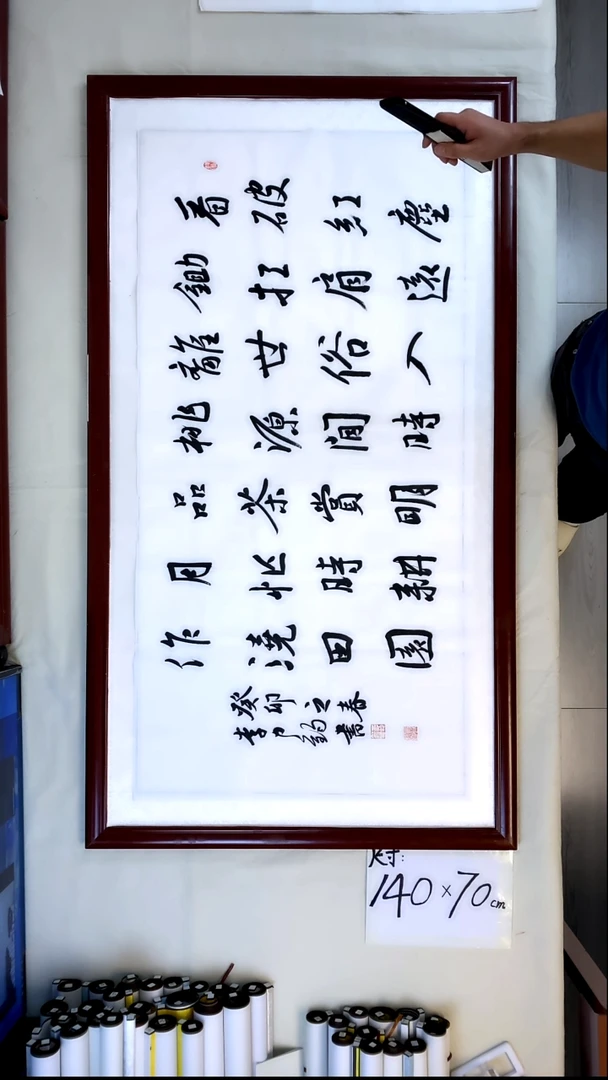 看破紅塵
鋤扛肩遠
離世俗人
桃源間時
品茶賞明
月忙時耕
作澆田園
癸卯之春
李乃鈞書
尺寸:
140×70cm